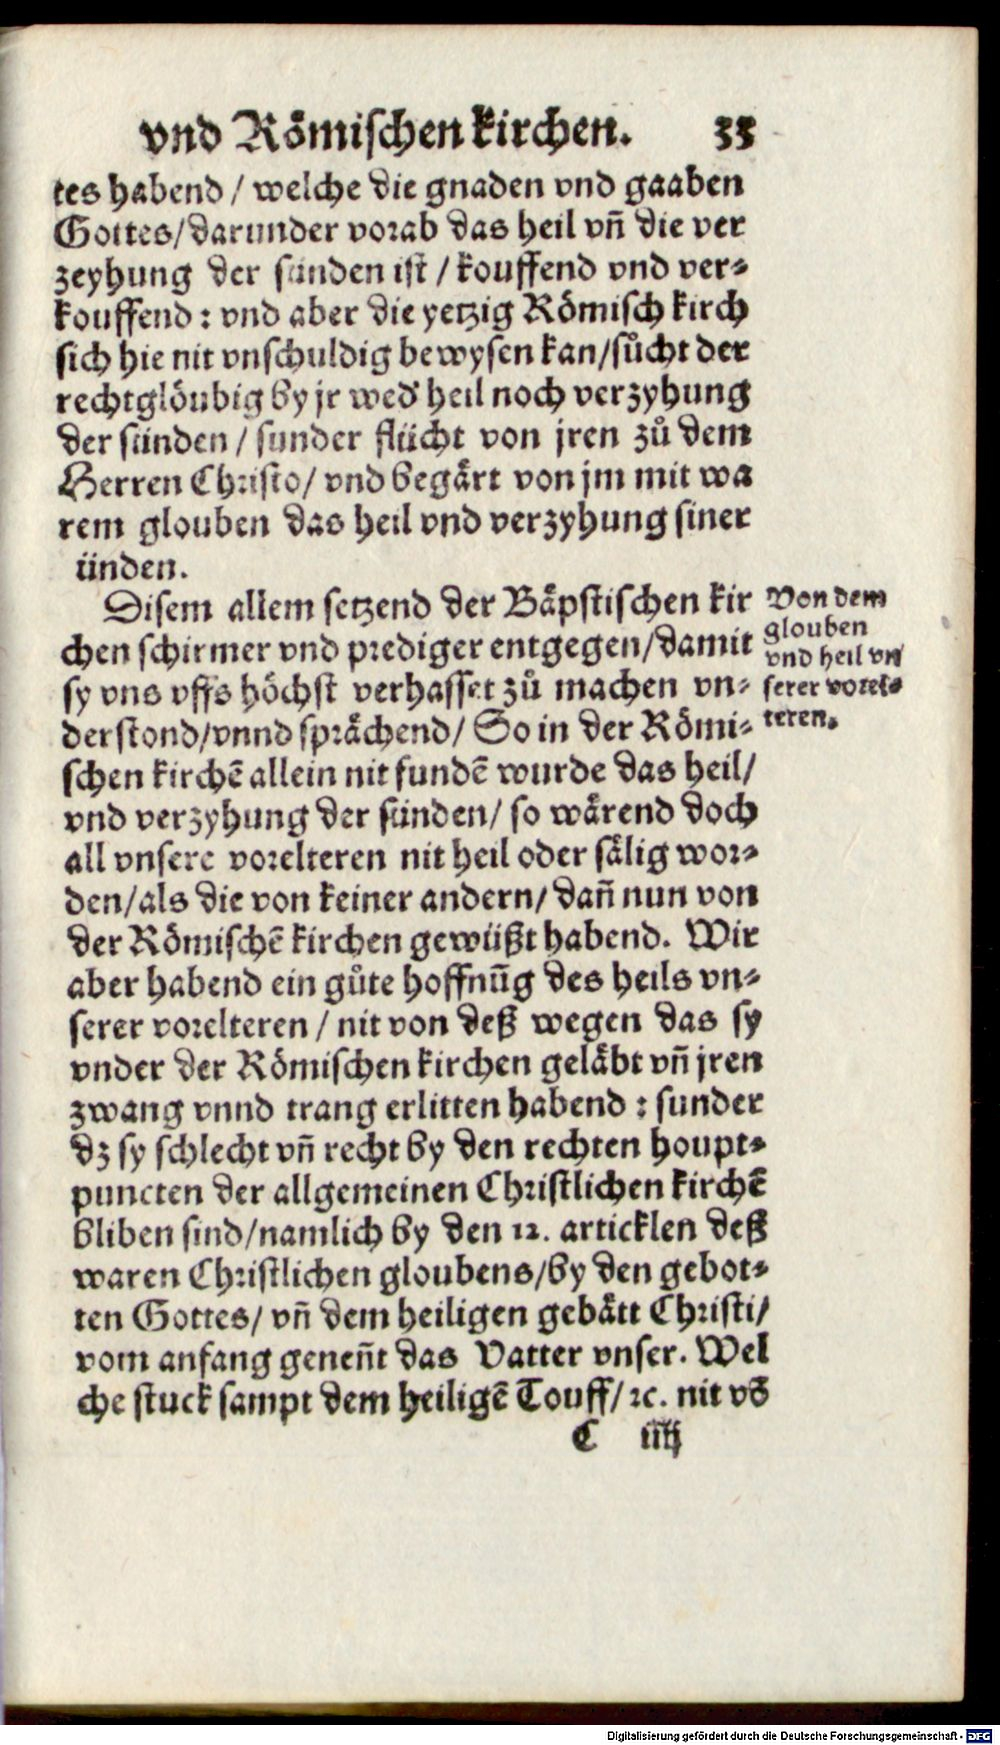 vnd Römischen kirchen. 33
tes habend / welche die gnaden vnd gaaben
Gottes/darunder vorab das heil vñ die ver
zeyhung der sünden ist / kouffend vnd ver⸗
kouffend : vnd aber die yetzig Römisch kirch
sich hie nit vnschuldig bewysen kan/sůcht der
rechtglöubig by jr wed’ heil noch verzyhung
der sünden / sunder flücht von jren zů dem
Herren Christo/ vnd begärt von jm mit wa
rem glouben das heil vnd verzyhung siner
ünden.
Disem allem setzend der Bäpstischen kir
chen schirmer vnd prediger entgegen/damit
sy vns vffs höchst verhasset zů machen vn⸗
derstond/vnnd sprächend/ So in der Römi⸗
schen kirchē allein nit fundē wurde das heil/
vnd verzyhung der sünden/ so wärend doch
all vnsere vorelteren nit heil oder sälig wor⸗
den/als die von keiner andern/ dañ nun von
der Römischē kirchen gewüßt habend. Wir
aber habend ein gůte hoffnūg des heils vn⸗
serer vorelteren / nit von deß wegen das sy
vnder der Römischen kirchen geläbt vñ jren
zwang vnnd trang erlitten habend : sunder
dz sy schlecht vñ recht by den rechten houpt⸗
puncten der allgemeinen Christlichen kirchē
bliben sind/namlich by den 12. articklen deß
waren Christlichen gloubens/by den gebot⸗
ten Gottes/ vñ dem heiligen gebätt Christi/
vom anfang genent̃ das Vatter vnser. Wel
che stuck sampt dem heiligē Touff/ ꝛc. nit vō
C iiij
Von dem
glouben
vnd heil vn
serer vorel⸗
teren.
Digitalisierung gefördert durch die Deutsche Forschungsgemeinschaft - DFG